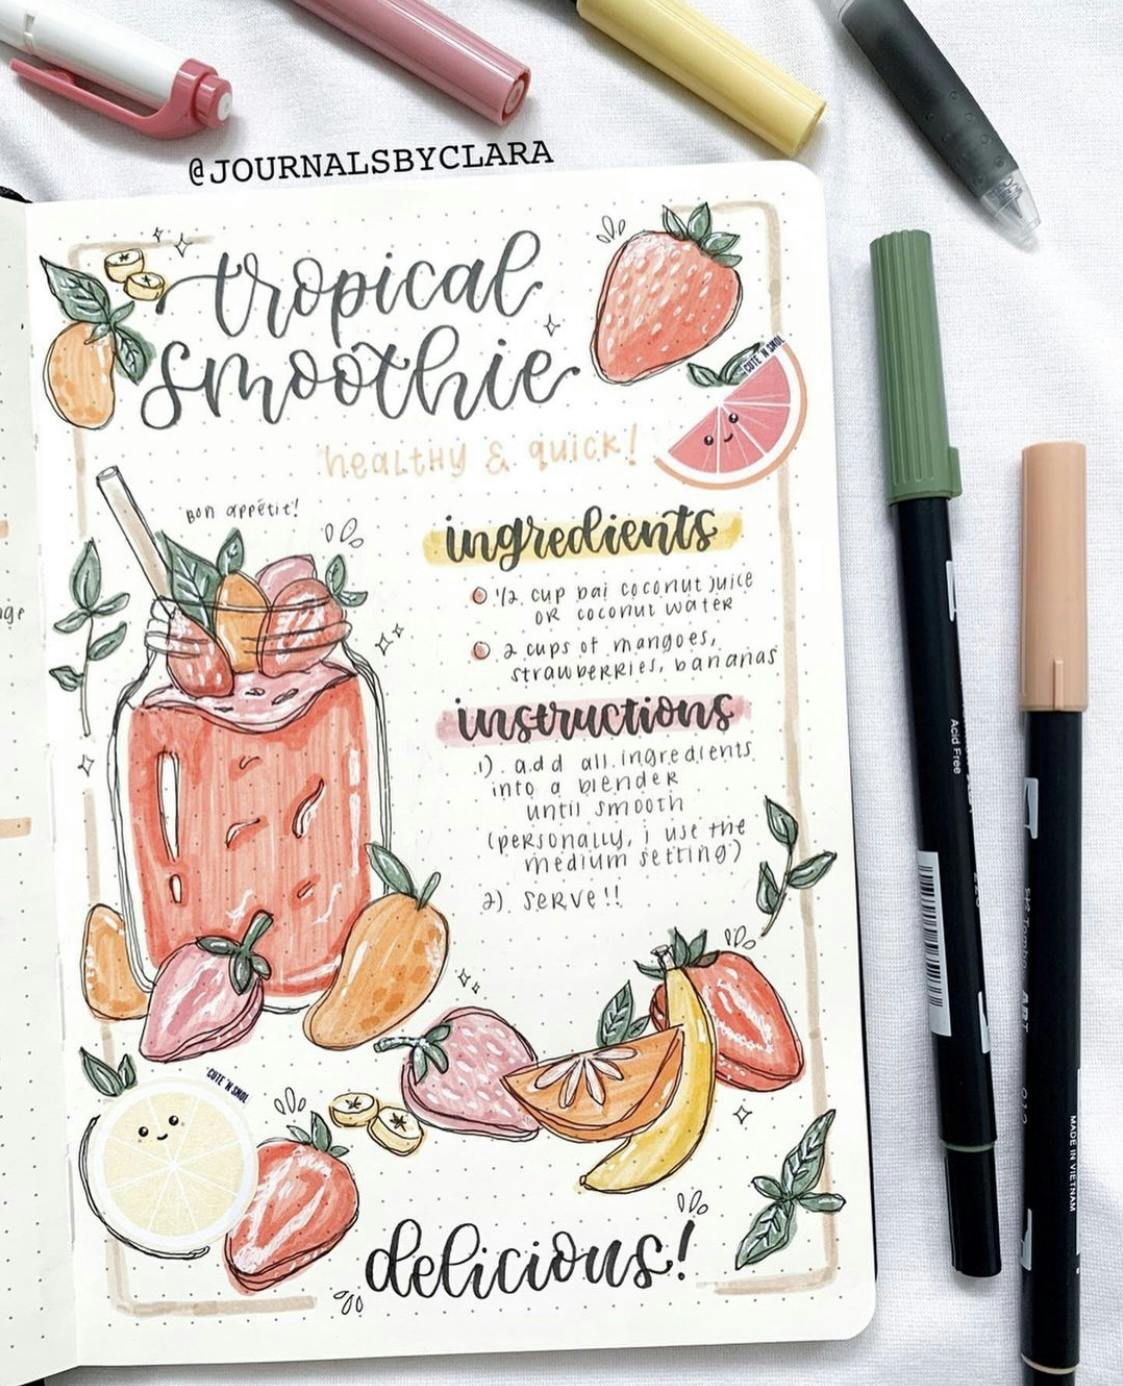 @JOURNALSBYCLARA
tropical
smoothie
healthy & quick!
CUTE 'N SMOL
Bon appétit!
ingredients
1/2 cup bai coconut juice
or coconut water
2 cups of mangoes,
strawberries, bananas
instructions
1). add all ingredients
into a blender
until smooth
(personally, i use the
medium setting)
2) serve!!
CUTE 'N SMOL
delicious!
Acid Free
ART
MADE IN VIETNAM